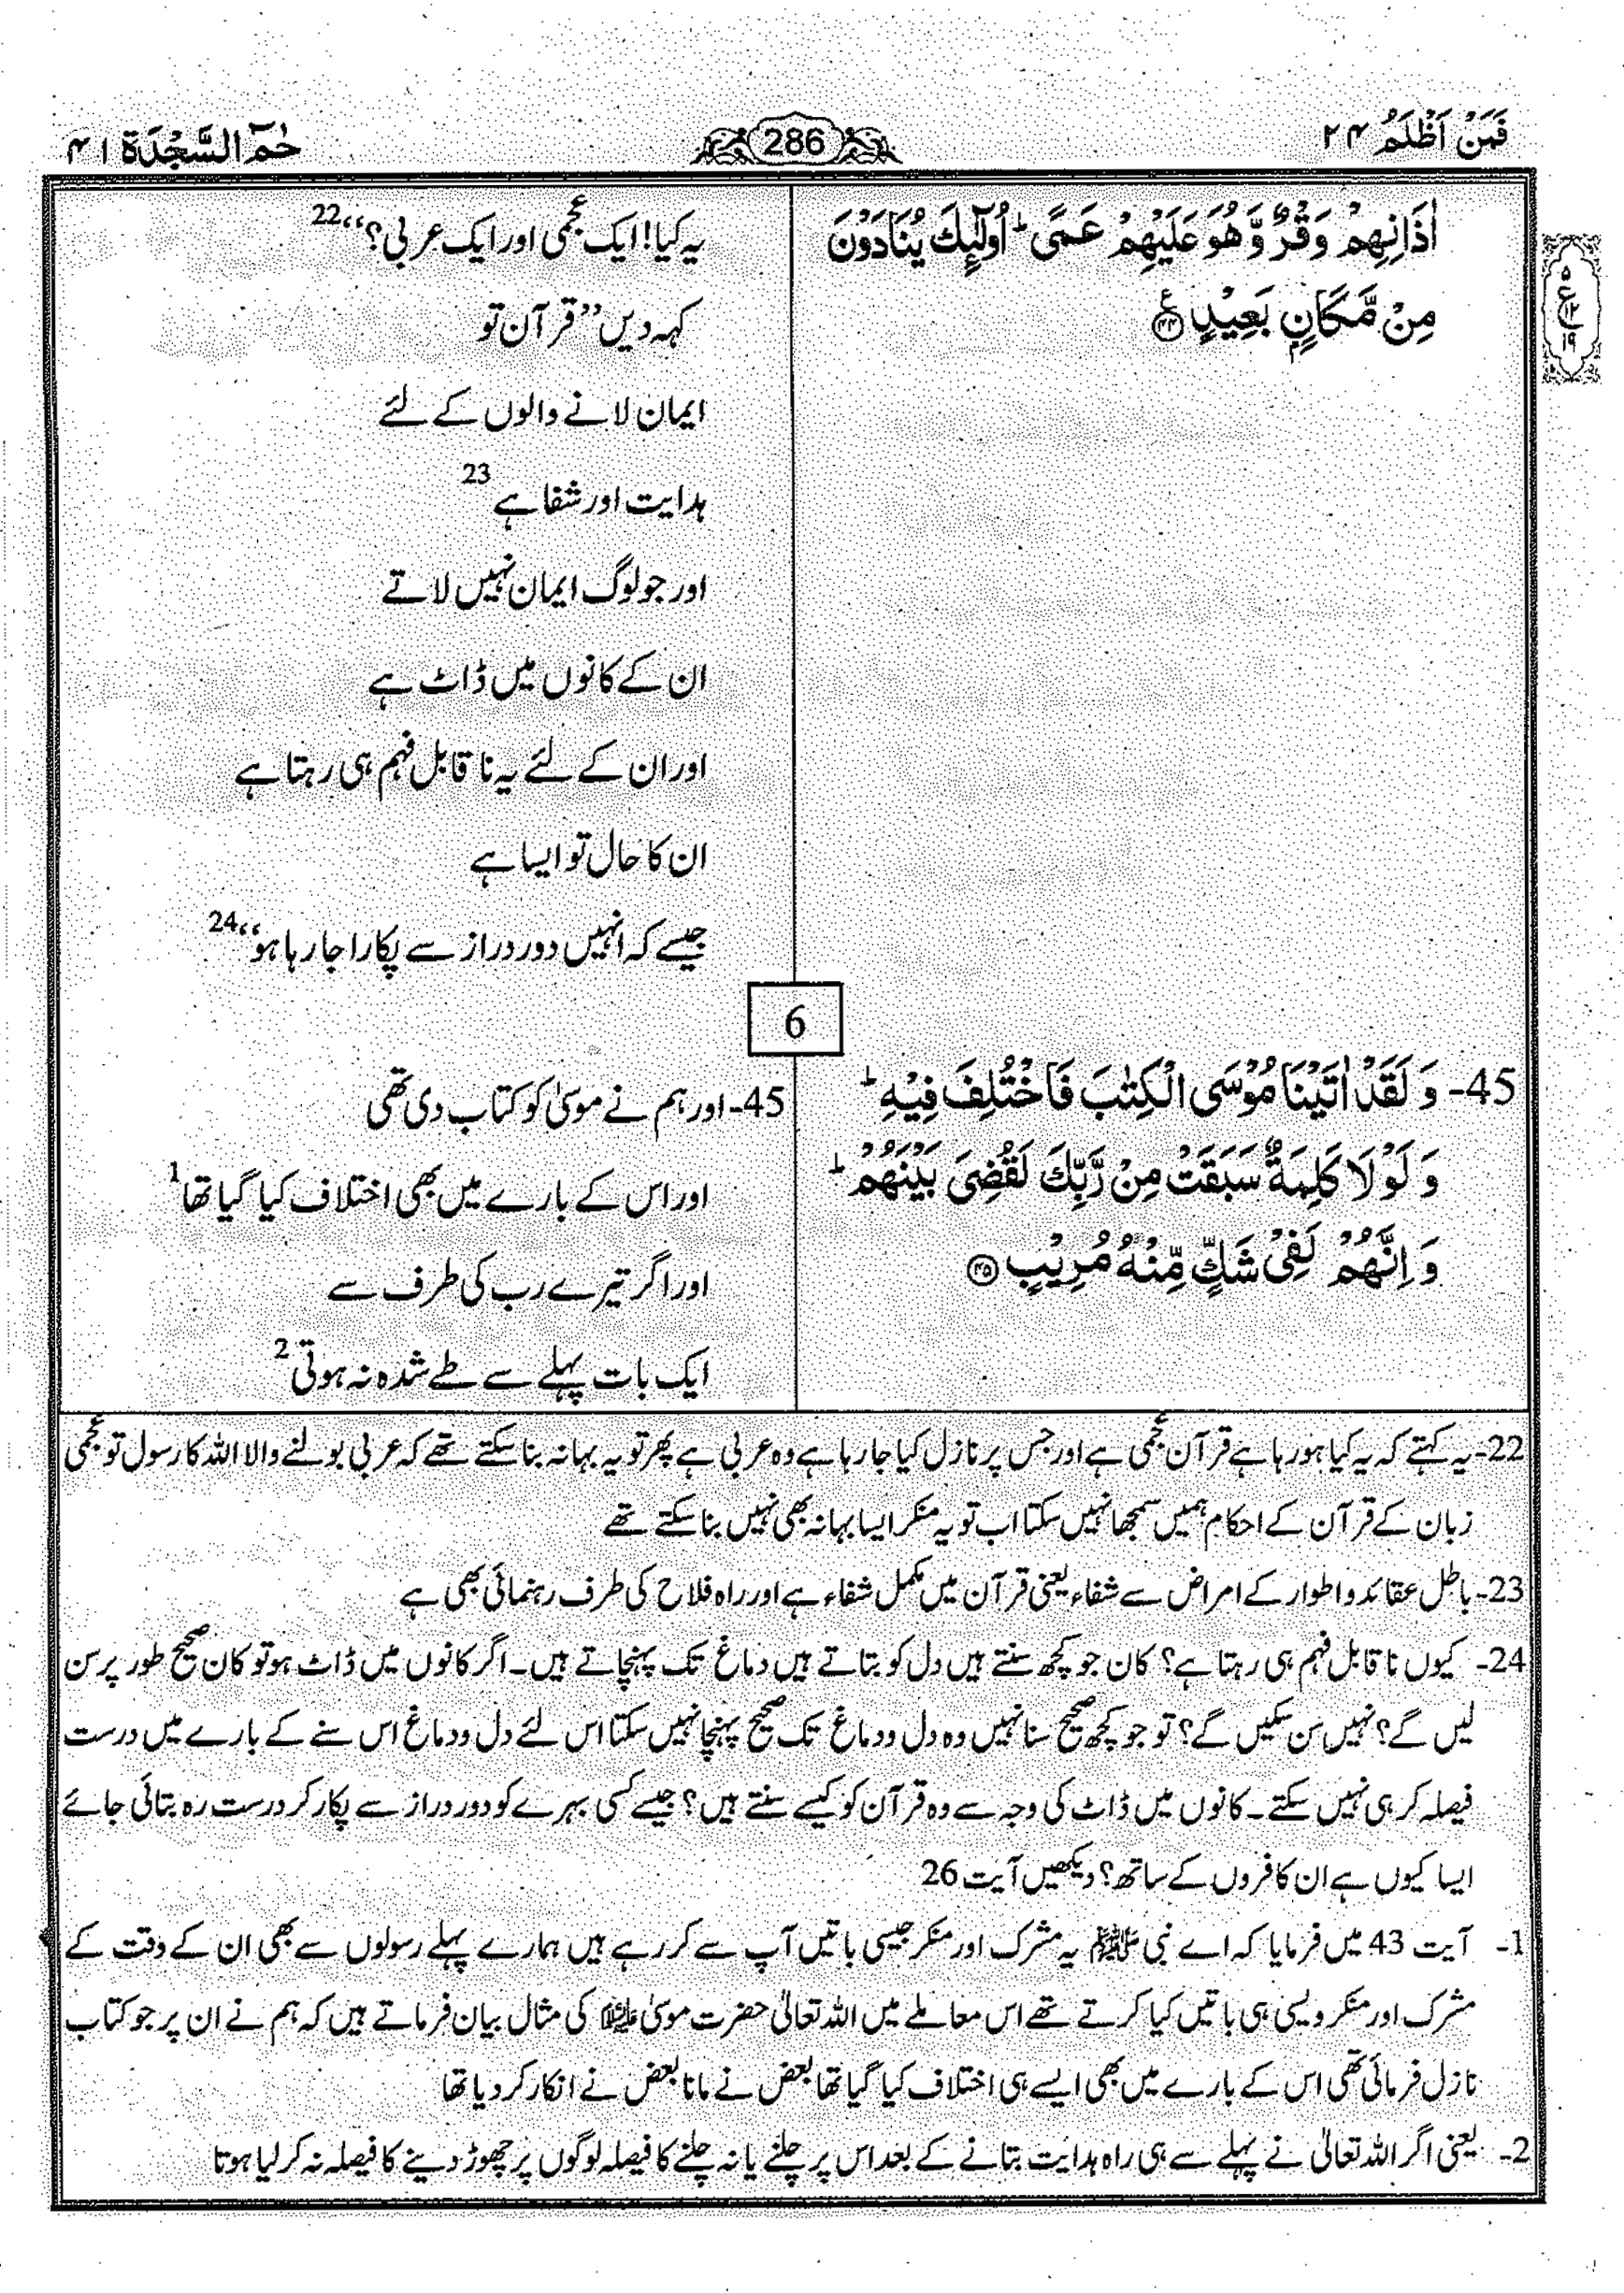 فَمَنْ اَظْلَمُ ۲۴
286
حٰمٓ السَّجْدَة ۴۱
اٰذَانِهِمْ وَقْرٌ وَّهُوَ عَلَيْهِمْ عَمًى ؕ اُولٰٓئِكَ يُنَادَوْنَ
مِنْ مَّكَانٍۭ بَعِيْدٍ ۴۴
یہ کیا! ایک عجمی اور ایک عربی؟‘‘22
کہہ دیں ’’قرآن تو
ایمان لانے والوں کے لئے
ہدایت اور شفا ہے 23
اور جو لوگ ایمان نہیں لاتے
ان کے کانوں میں ڈاٹ ہے
اور ان کے لئے یہ نا قابل فہم ہی رہتا ہے
ان کا حال تو ایسا ہے
جیسے کہ انہیں دور دراز سے پکارا جا رہا ہو‘‘24
6
45- وَ لَقَدْ اٰتَيْنَا مُوْسَى الْكِتٰبَ فَاخْتُلِفَ فِيْهِ ؕ
وَ لَوْ لَا كَلِمَةٌ سَبَقَتْ مِنْ رَّبِّكَ لَقُضِىَ بَيْنَهُمْ ؕ
وَ اِنَّهُمْ لَفِىْ شَكٍّ مِّنْهُ مُرِيْبٍ ۴۵
45- اور ہم نے موسیٰ کو کتاب دی تھی
اور اس کے بارے میں بھی اختلاف کیا گیا تھا 1
اور اگر تیرے رب کی طرف سے
ایک بات پہلے سے طے شدہ نہ ہوتی 2
22- یہ کہتے کہ یہ کیا ہو رہا ہے قرآن عجمی ہے اور جس پر نازل کیا جا رہا ہے وہ عربی ہے پھر تو یہ بہانہ بنا سکتے تھے کہ عربی بولنے والا اللہ کا رسول تو عجمی
زبان کے قرآن کے احکام ہمیں سمجھا نہیں سکتا اب تو یہ منکر ایسا بہانہ بھی نہیں بنا سکتے تھے
23- باطل عقائد و اطوار کے امراض سے شفاء یعنی قرآن میں مکمل شفاء ہے اور راہ فلاح کی طرف رہنمائی بھی ہے
24- کیوں نا قابل فہم ہی رہتا ہے؟ کان جو کچھ سنتے ہیں دل کو بتاتے ہیں دماغ تک پہنچاتے ہیں۔ اگر کانوں میں ڈاٹ ہو تو کان صحیح طور پر سن
لیں گے؟ نہیں سن سکیں گے؟ تو جو کچھ صحیح سنا نہیں وہ دل و دماغ تک صحیح پہنچا نہیں سکتا اس لئے دل و دماغ اس سنے کے بارے میں درست
فیصلہ کر ہی نہیں سکتے۔ کانوں میں ڈاٹ کی وجہ سے وہ قرآن کو کیسے سنتے ہیں؟ جیسے کسی بہرے کو دور دراز سے پکار کر درست رہ بتائی جائے
ایسا کیوں ہے ان کافروں کے ساتھ؟ دیکھیں آیت 26
1- آیت 43 میں فرمایا کہ اے نبی ﷺ یہ مشرک اور منکر جیسی باتیں آپ سے کر رہے ہیں ہمارے پہلے رسولوں سے بھی ان کے وقت کے
مشرک اور منکر ویسی ہی باتیں کیا کرتے تھے اس معاملے میں اللہ تعالیٰ حضرت موسیٰ علیہ السلام کی مثال بیان فرماتے ہیں کہ ہم نے ان پر جو کتاب
نازل فرمائی تھی اس کے بارے میں بھی ایسے ہی اختلاف کیا گیا تھا بعض نے مانا بعض نے انکار کر دیا تھا
2- یعنی اگر اللہ تعالیٰ نے پہلے سے ہی راہ ہدایت بتانے کے بعد اس پر چلنے یا نہ چلنے کا فیصلہ لوگوں پر چھوڑ دینے کا فیصلہ نہ کر لیا ہوتا